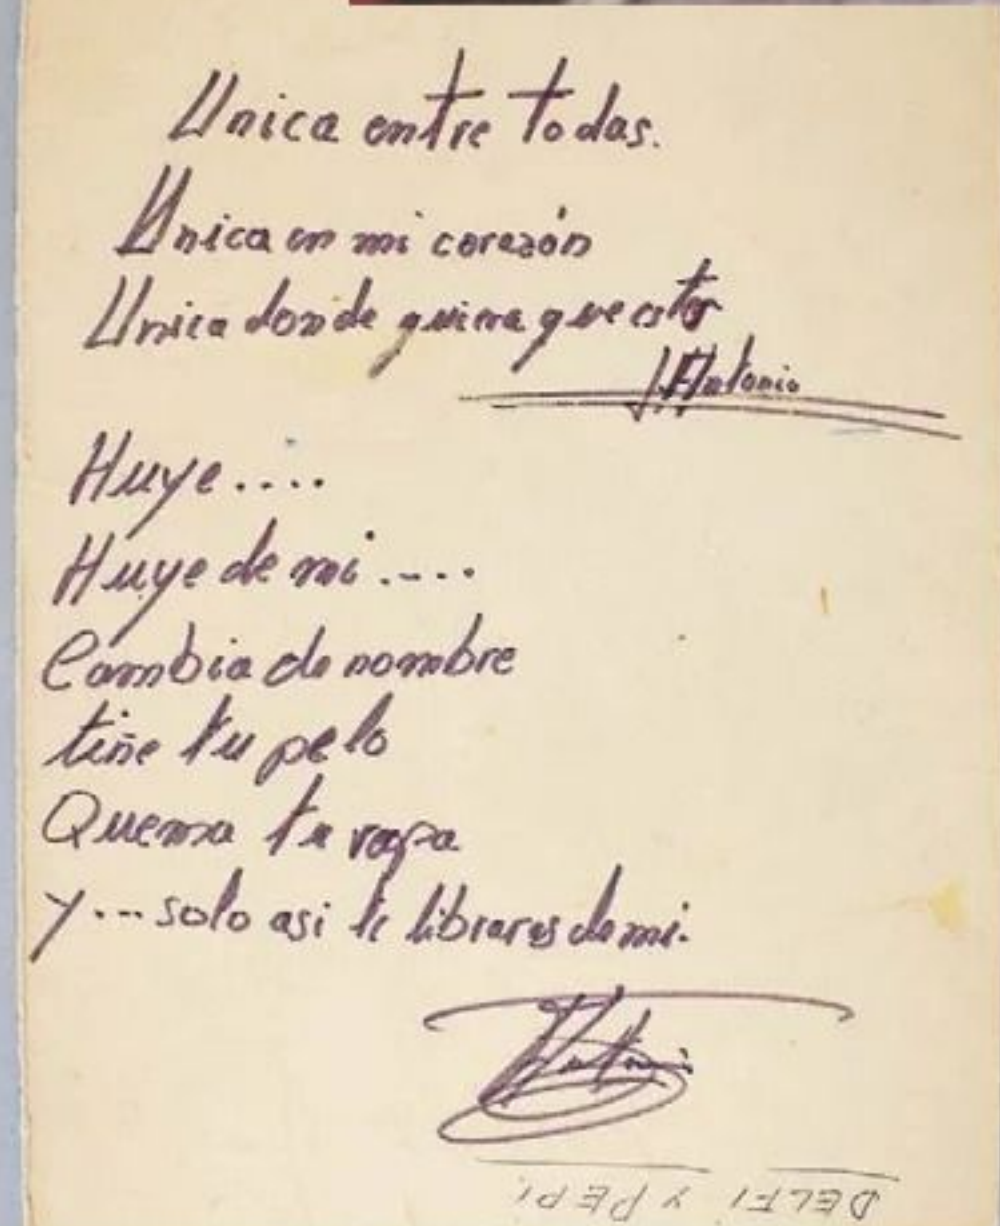 Unica entre todas.
Unica en mi corazón
Unica donde quiera que estes
J. Antonio
Huye....
Huye de mi....
Cambia de nombre
tiñe tu pelo
Quema tu ropa
y... solo asi te libraras de mi.
Antonio
DELFI Y PEPI.